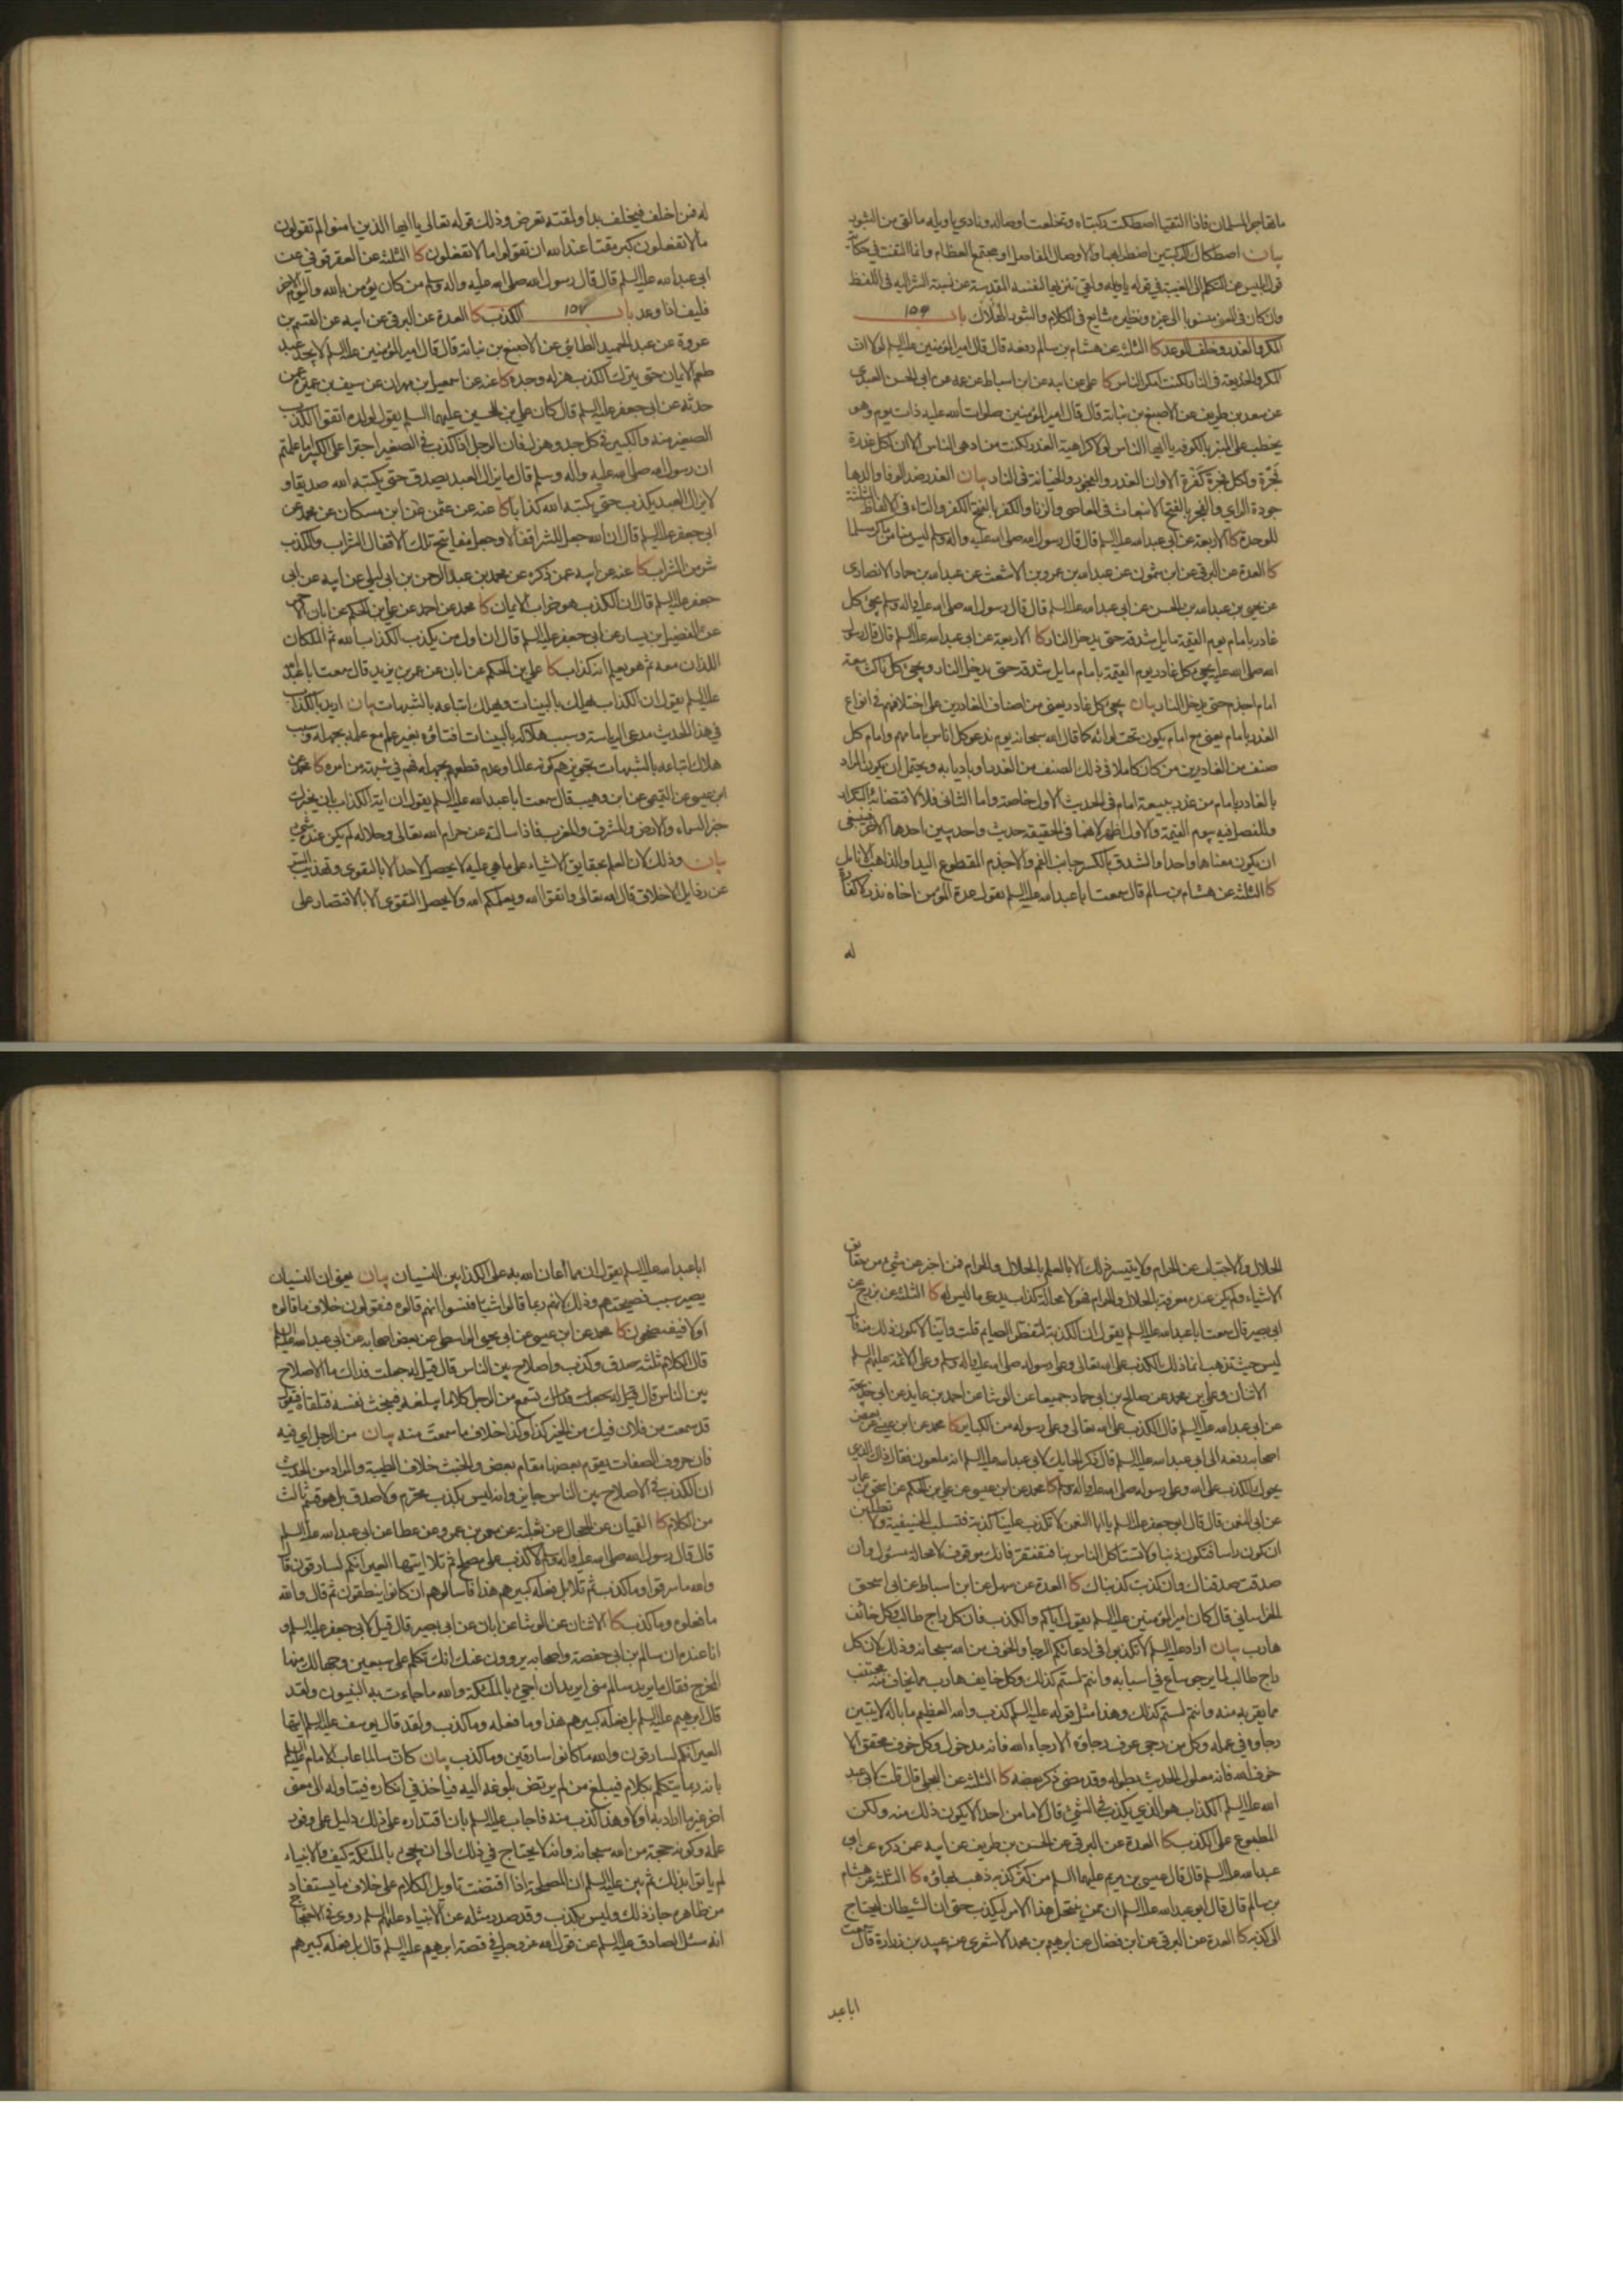 ما تهاجر المسلمان فاذا التقيا اصطكت ركبتاه وتخلعت اوصاله ونادى يا ويله ما لقى من الثبور
بيان اصطكاك الركبتين اضطرابهما والاوصال المفاصل او مجتمع العظام وانما التفت في حكاية
قول ابليس عن التكلم الى الغيبة في قوله يا ويله ولقى تنزيها لنفسه المقدسة عن نسبة الشر اليه في اللفظ
وان كان في المعنى منسوبا الى غيره ونظيره شايع في الكلام والثبور الهلاك باب ١٥٦
المكر والغدر وخلف الوعد كا الثلثة عن هشام بن سالم رفعه قال قال امير المؤمنين عليه السلم لولا ان
المكر والخديعة في النار لكنت امكر الناس كا علي عن ابيه عن ابن اسباط عن عمه عن ابي الحسن العبدي
عن سعد بن طريف عن الاصبغ بن نباتة قال قال امير المؤمنين صلوات الله عليه ذات يوم وهو
يخطب على المنبر بالكوفة يا ايها الناس لولا كراهية الغدر لكنت من ادهى الناس الا ان لكل غدرة
فجرة ولكل فجرة كفرة الا وان الغدر والفجور والخيانة في النار بيان الغدر ضد الوفا والدها
جودة الراي والفجر بالفتح الانبعاث في المعاصي والزنا والكفر بالفتح الكفر والتاء في الالفاظ الثلثة
للوحدة كا الاربعة عن ابي عبد الله عليه السلم قال قال رسول الله صلى الله عليه واله وسلم ليس منا من ماكر مسلما
كا العدة عن البرقي عن ابن شمون عن عبد الله بن عمرو بن الاشعث عن عبد الله بن حماد الانصاري
عن يحيى بن عبد الله بن الحسن عن ابي عبد الله عليه السلم قال قال رسول الله صلى الله عليه واله وسلم يجئ كل
غادر بامام يوم القيمة مايل شدقه حتى يدخل النار كا الاربعة عن ابي عبد الله عليه السلم قال قال رسول
الله صلى الله عليه يجئ كل غادر يوم القيمة بامام مايل شدقه حتى يدخل النار ويجئ كل ناكث بيعة
امام اجذم حتى يدخل النار بيان يجئ كل غادر يعني من اصناف الغادرين على اختلافهم في انواع
الغدر بامام يعني مع امام يكون تحت لوائه كما قال الله سبحانه يوم ندعو كل اناس بامامهم وامام كل
صنف من الغادرين من كان كاملا في ذلك الصنف من الغدر او باديا به ويحتمل ان يكون المراد
بالغادر بامام من غدر ببيعة امام في الحديث الاول خاصة واما الثاني فلا لاقتضائه التكرار
وللفصل فيه بيوم القيمة والاول اظهر لانهما في الحقيقة حديث واحد يبين احدهما الاخر فينبغي
ان يكون معناهما واحدا والشدق بالكسر جانب الفم والاجذم المقطوع اليد او الذاهب الانامل
كا الثلثة عن هشام بن سالم قال سمعت ابا عبد الله عليه السلم يقول عدة المؤمن اخاه نذر لا كفارة
له
له فمن اخلف فبخلف الله بدا ولمقته تعرض وذلك قوله تعالى يا ايها الذين امنوا لم تقولون
ما لا تفعلون كبر مقتا عند الله ان تقولوا ما لا تفعلون كا الثلثة عن العقرقوفي عن
ابي عبد الله عليه السلم قال قال رسول الله صلى الله عليه واله وسلم من كان يؤمن بالله واليوم الاخر
فليف اذا وعد باب ١٥٧ الكذب كا العدة عن البرقي عن ابيه عن القسم بن
عروة عن عبد الحميد الطائي عن الاصبغ بن نباتة قال قال امير المؤمنين عليه السلم لا يجد عبد
طعم الايمان حتى يترك الكذب هزله وجده كا عنه عن اسمعيل بن مهران عن سيف بن عميرة عمن
حدثه عن ابي جعفر عليه السلم قال كان علي بن الحسين عليهما السلم يقول لولده اتقوا الكذب
الصغير منه والكبير في كل جد وهزل فان الرجل اذا كذب في الصغير اجترا على الكبير اما علمتم
ان رسول الله صلى الله عليه واله وسلم قال ما يزال العبد يصدق حتى يكتبه الله صديقا و
لا يزال العبد يكذب حتى يكتبه الله كذابا كا عنه عن عثمن عن ابن مسكان عن محمد عن
ابي جعفر عليه السلم قال ان الله جعل للشر اقفالا وجعل مفاتيح تلك الاقفال الشراب والكذب
شر من الشراب كا عنه عن ابيه عمن ذكره عن محمد بن عبد الرحمن بن ابي ليلى عن ابيه عن ابي
جعفر عليه السلم قال ان الكذب هو خراب الايمان كا محمد عن احمد عن علي بن الحكم عن ابان الاحمر
عن الفضيل بن يسار عن ابي جعفر عليه السلم قال ان اول من يكذب الكذاب الله ثم الملكان
اللذان معه ثم هو يعلم انه كذاب كا علي بن الحكم عن ابان عن عمر بن يزيد قال سمعت ابا عبد الله
عليه السلم يقول ان الكذاب يهلك بالبينات ويهلك اتباعه بالشبهات بيان اريد بالكذاب
في هذا الحديث مدعي الرياسة وسبب هلاكه بالبينات افتاؤه بغير علم مع علمه بجهله وسبب
هلاك اتباعه بالشبهات تجويزهم كونه عالما وعدم قطعهم بجهله فهم في شبهة من امره كا محمد عن
ابن عيسى عن التميمي عن ابن وهيب قال سمعت ابا عبد الله عليه السلم يقول ان اية الكذاب بان يخبرك
خبر السماء والارض والمشرق والمغرب فاذا سالته عن حرام الله تعالى وحلاله لم يكن عنده شئ
بيان وذلك لان العلم بحقايق الاشياء على ما هي عليه لا يحصل لاحد الا بالتقوى وتهذيب السر
عن رذايل الاخلاق قال الله تعالى واتقوا الله ويعلمكم الله ولا يحصل التقوى الا بالاقتصار على
الحلال والاجتناب عن الحرام ولا يتيسر ذلك الا بالعلم بالحلال والحرام فمن اخبر عن شئ من حقايق
الاشياء ولم يكن عنده معرفة بالحلال والحرام فهو لا محالة كذاب يدعي ما ليس له كا الثلثة عن بزرج عن
ابي بصير قال سمعت ابا عبد الله عليه السلم يقول ان الكذبة لتفطر الصايم قلت واينا لا يكون ذلك منه قال
ليس حيث تذهب انما ذلك الكذب على الله تعالى وعلى رسوله صلى الله عليه واله وسلم وعلى الائمة عليهم السلم
الاثنان وعلي بن محمد عن صالح بن ابي حماد جميعا عن الوشا عن احمد بن عايذ عن ابي خديجة
عن ابي عبد الله عليه السلم قال الكذب على الله تعالى وعلى رسوله من الكباير كا محمد عن ابن عيسى عن بعض
اصحابه رفعه الى ابي عبد الله عليه السلم قال ذكر الحايك لابي عبد الله عليه السلم انه ملعون فقال ذاك الذي
يحوك الكذب على الله وعلى رسوله صلى الله عليه واله وسلم كا محمد عن ابن عيسى عن علي بن الحكم عن اسحق بن عمار
عن ابي النعمن قال قال ابو جعفر عليه السلم يا ابا النعمن لا تكذب علينا كذبة فتسلب الحنيفية ولا تطلبن
ان تكون راسا فتكون ذنبا ولا تستاكل الناس بنا فتفتقر فانك موقوف لا محالة مسئول وان
صدقت صدقناك وان كذبت كذبناك كا العدة عن سهل عن ابن اسباط عن ابي اسحق
الخراساني قال كان امير المؤمنين عليه السلم يقول اياكم والكذب فان كل راج طالب وكل خائف
هارب بيان اراد عليه السلم لا تكذبوا في ادعائكم الرجا والخوف من الله سبحانه وذلك لان كل
راج طالب لما يرجو ساع في اسبابه وانتم لستم كذلك وكل خايف هارب مما يخاف منه مجتنب
مما يقربه منه وانتم لستم كذلك وهذا مثل قوله عليه السلم كذب والله العظيم ما باله لا يتبين
رجاؤه في عمله وكل من رجى عرف رجاؤه الا رجاء الله فانه مدخول وكل خوف محقق الا
خوف الله فانه معلول الحديث بطوله وقد مضى ذكر بعضه كا الثلثة عن البجلي قال قلت لابي عبد
الله عليه السلم الكذاب هو الذي يكذب في الشئ قال لا ما من احد الا يكون ذلك منه ولكن
المطبوع على الكذب كا العدة عن البرقي عن الحسن بن طريف عن ابيه عمن ذكره عن ابي
عبد الله عليه السلم قال قال عيسى بن مريم عليهما السلم من كثر كذبه ذهب بهاؤه كا الثلثة عن هشام
بن سالم قال قال ابو عبد الله عليه السلم ان ممن ينتحل هذا الامر ليكذب حتى ان الشيطان ليحتاج
الى كذبه كا العدة عن البرقي عن ابن فضال عن ابرهيم بن محمد الاشعري عن عبيد بن زرارة قال سمعت
ابا عبد
ابا عبد الله عليه السلم يقول ان مما اعان الله به على الكذابين النسيان بيان يعني ان النسيان
يصير سبب فضيحتهم وذلك لانهم ربما قالوا شيئا فنسوا انهم قالوه فيقولون خلاف ما قالوه
اولا فيفتضحون كا محمد عن ابن عيسى عن ابي يحيى الواسطي عن بعض اصحابه عن ابي عبد الله عليه السلم
قال الكلام ثلثة صدق وكذب واصلاح بين الناس قال قيل له جعلت فداك ما الاصلاح
بين الناس قال تسمع من الرجل كلاما يبلغه فيخبث نفسه فتلقاه فتقول
قد سمعت من فلان فيك من الخير كذا وكذا خلاف ما سمعت منه بيان من الرجل اي فيه
فان حروف الصفات يقوم بعضها مقام بعض والخبث خلاف الطيبة والمراد من الحديث
ان الكذب في الاصلاح بين الناس جايز وانه ليس بكذب محرم ولا صدق بل هو قسم ثالث
من الكلام كا القميان عن الحجال عن ثعلبة عن معمر بن عمرو عن عطا عن ابي عبد الله عليه السلم
قال قال رسول الله صلى الله عليه واله وسلم لا كذب على مصلح ثم تلا ايتها العير انكم لسارقون قال
والله ما سرقوا وما كذب ثم تلا بل فعله كبيرهم هذا فاسالوهم ان كانوا ينطقون ثم قال والله
ما فعلوه وما كذب كا الاثنان عن الوشا عن ابان عن ابي بصير قال قيل لابي جعفر عليه السلم و
انا عنده ان سالم بن ابي حفصة واصحابه يروون عنك انك تكلم على سبعين وجها لك منها
المخرج فقال ما يريد سالم مني ايريد ان اجئ بالملئكة والله ما جاءت به النبيون ولقد
قال ابرهيم عليه السلم بل فعله كبيرهم هذا وما فعله وما كذب ولقد قال يوسف عليه السلم ايتها
العير انكم لسارقون والله ما كانوا سارقين وما كذب بيان كان سالما عاب الامام عليه السلم
بانه ربما يتكلم بكلام فيبلغ من لم يرتض بلوغه اليه فياخذ في انكاره فيتاوله الى معنى
اخر غير ما اراد به اولا وهذا كذب منه فاجاب عليه السلم بان اقتداره على ذلك دليل على وفور
علمه وكونه حجة من الله سبحانه وانه لا يحتاج في ذلك الى ان يجئ بالملئكة كيف والانبياء
لم ياتوا بذلك ثم بين عليه السلم ان المصلحة اذا اقتضت تاويل الكلام على خلاف ما يستفاد
من ظاهره جاز ذلك وليس بكذب وقد صدر مثله عن الانبياء عليهم السلم روى في الاحتجاج
انه سئل الصادق عليه السلم عن قول الله عز وجل في قصة ابرهيم عليه السلم قال بل فعله كبيرهم